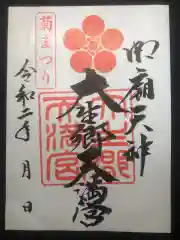 御廟天神
大生郷天満宮
菊まつり
令和二年 月 日